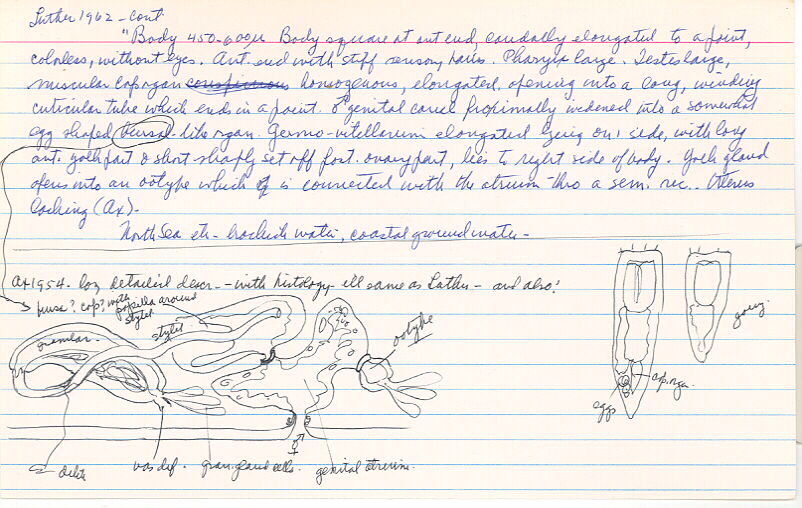 Luther 1962 - cont
"Body 450-600µ Body square at ant end, caudally elongated to a point,
colorless, without eyes. Ant. end with stiff sensory hairs. Pharynx large. Testes large,
muscular cop organ conspicuous homogenous, elongated, opening into a long, winding
cuticular tube which ends in a point. ♂ genital canal proximally widened into a somewhat
egg shaped bursa-like organ. Germo-vitellarium elongated lying on 1 side, with long
ant. yolk part & short sharply set off post. ovary part, lies to right side of body. Yolk gland
opens into an ootype which is connected with the atrium thro a sem. rec.. Uterus
lacking (Ax).
North Sea etc - brackish water, coastal groundwater -
Ax 1954. long detailed descr. -- with histology ill same as Luther - and also:
burse? cop? with
papilla around
stylet
granular
stylet
ootype
young
cop. organ
egg
delete
vas def.
gran. gland cells.
♂
♀
genital atrium